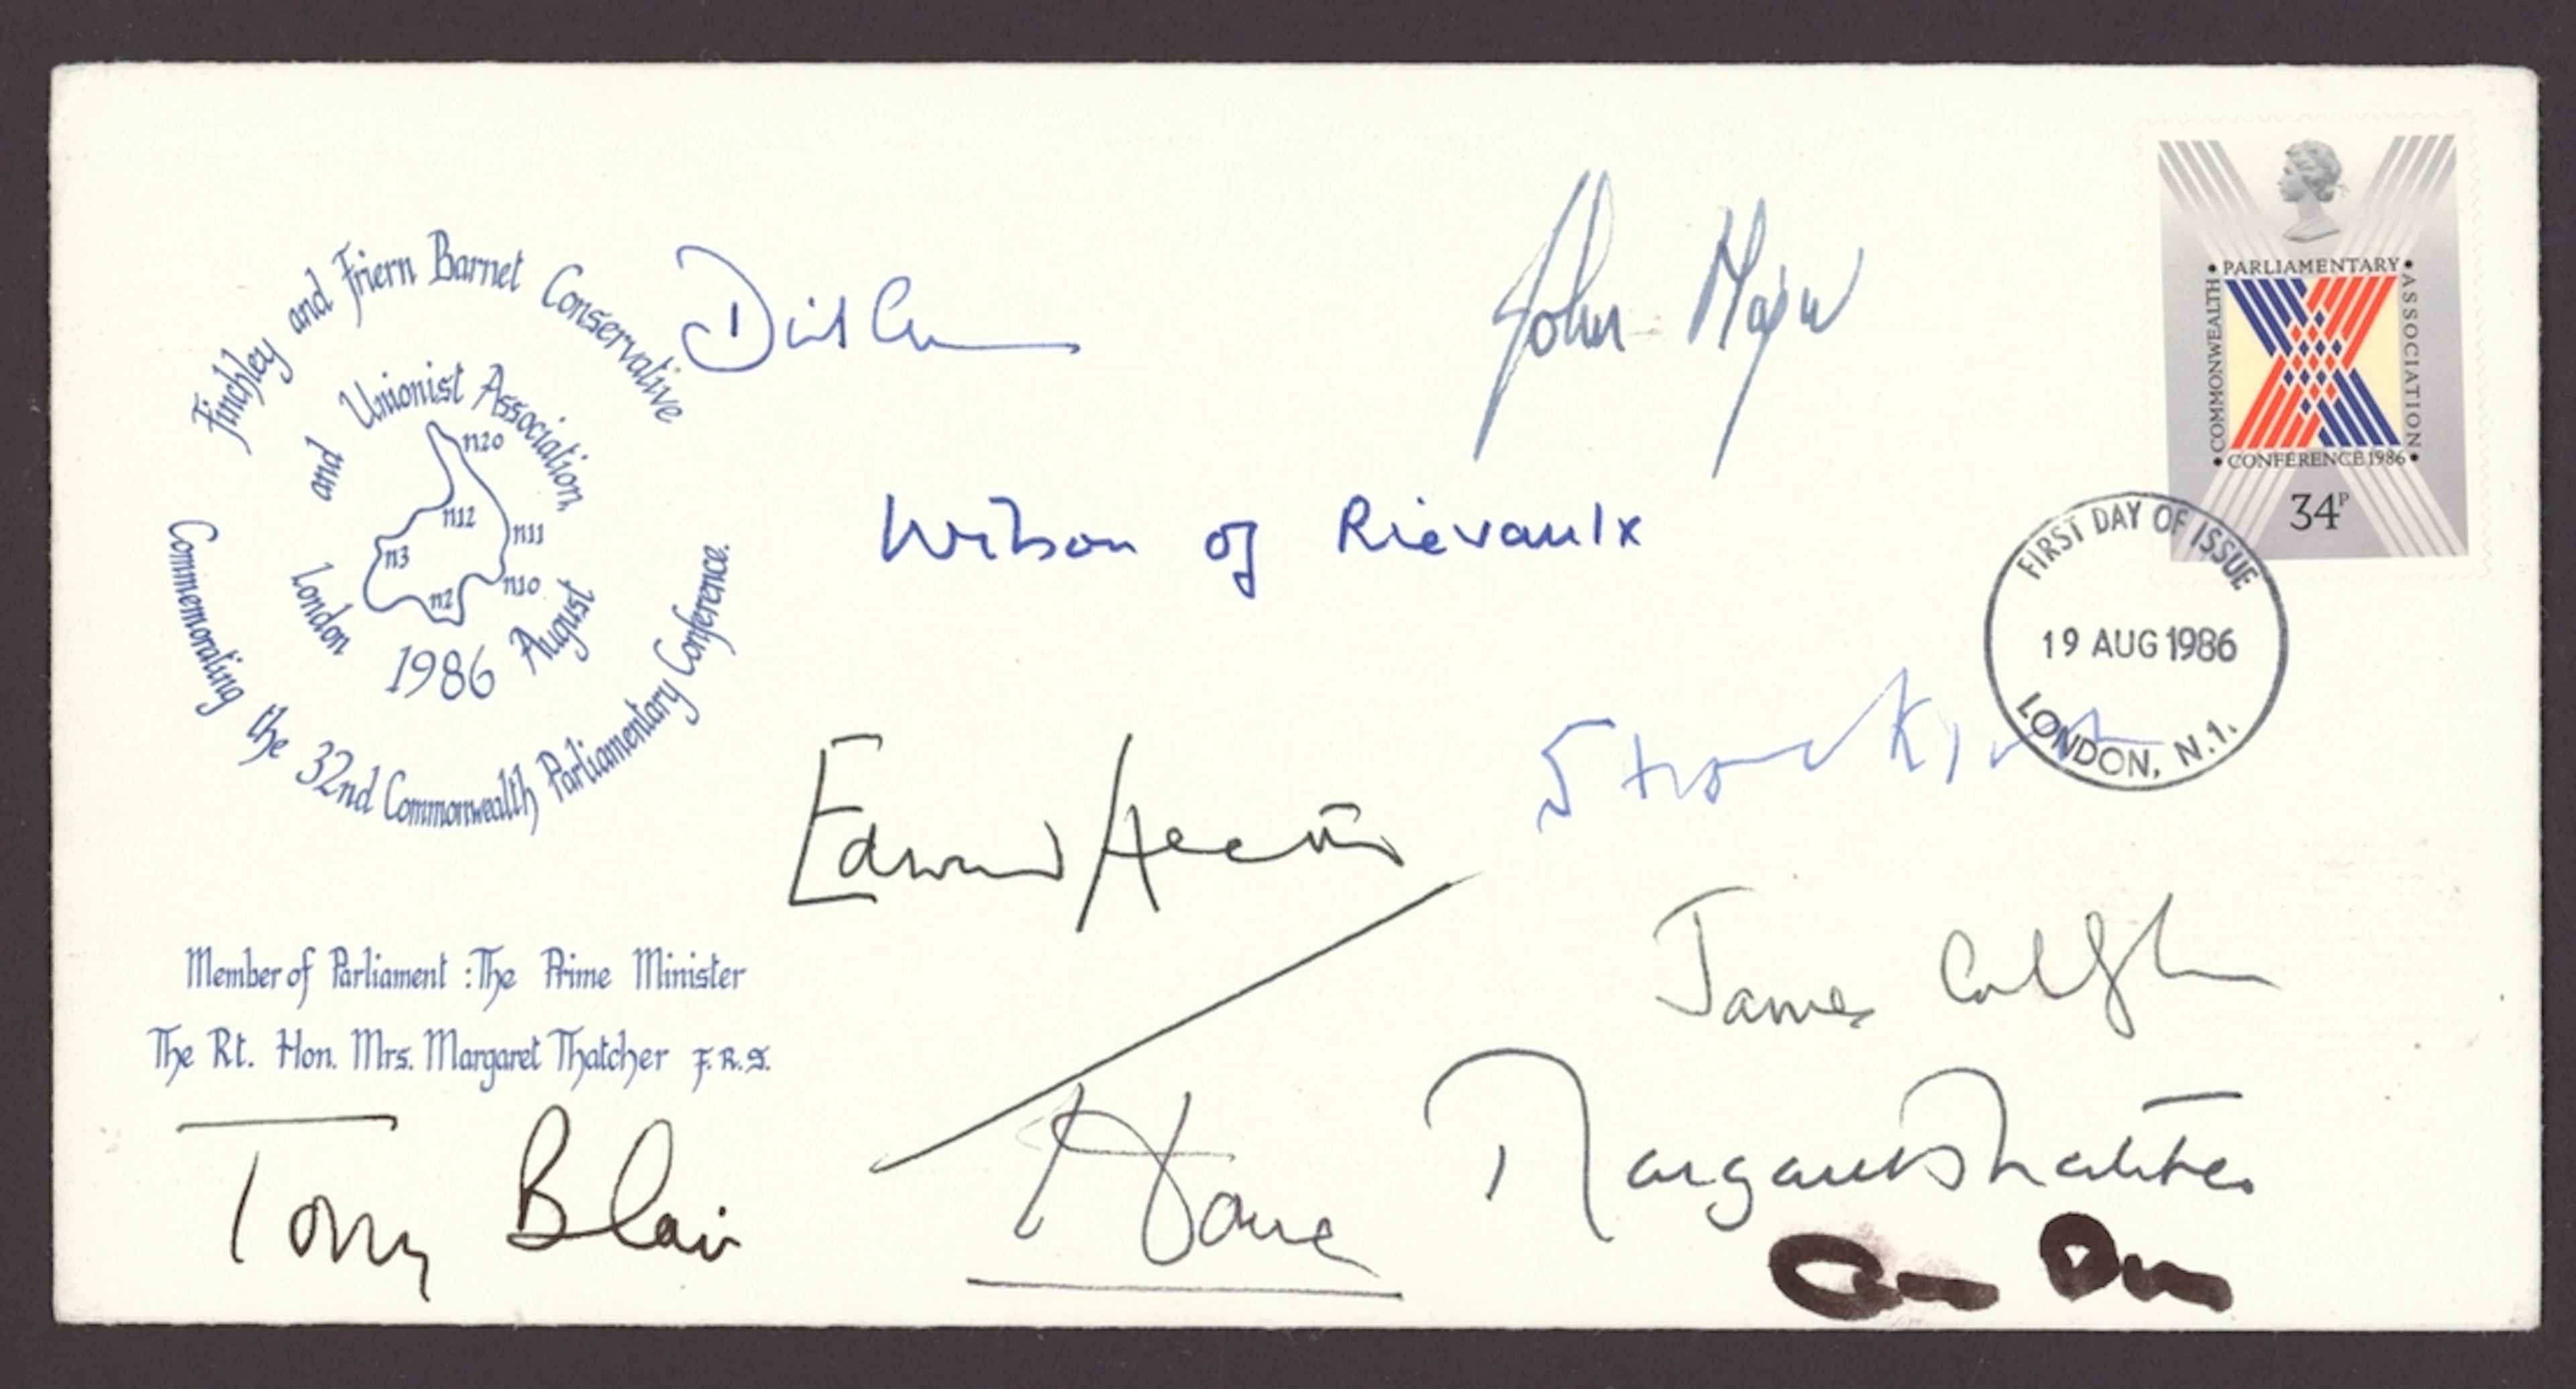 Finchley and Friern Barnet Conservative
and Unionist Association
n20
n12
n11
n3
n10
n2
London 1986 August
Commemorating the 32nd Commonwealth Parliamentary Conference.
Member of Parliament : The Prime Minister
The Rt. Hon. Mrs. Margaret Thatcher F.R.S.
John Major
Wilson of Rievaulx
Edward Heath
Stockton
James Callaghan
Margaret Thatcher
Tony Blair
Home
• PARLIAMENTARY •
COMMONWEALTH
ASSOCIATION
• CONFERENCE 1986 •
34P
FIRST DAY OF ISSUE
19 AUG 1986
LONDON, N.1.